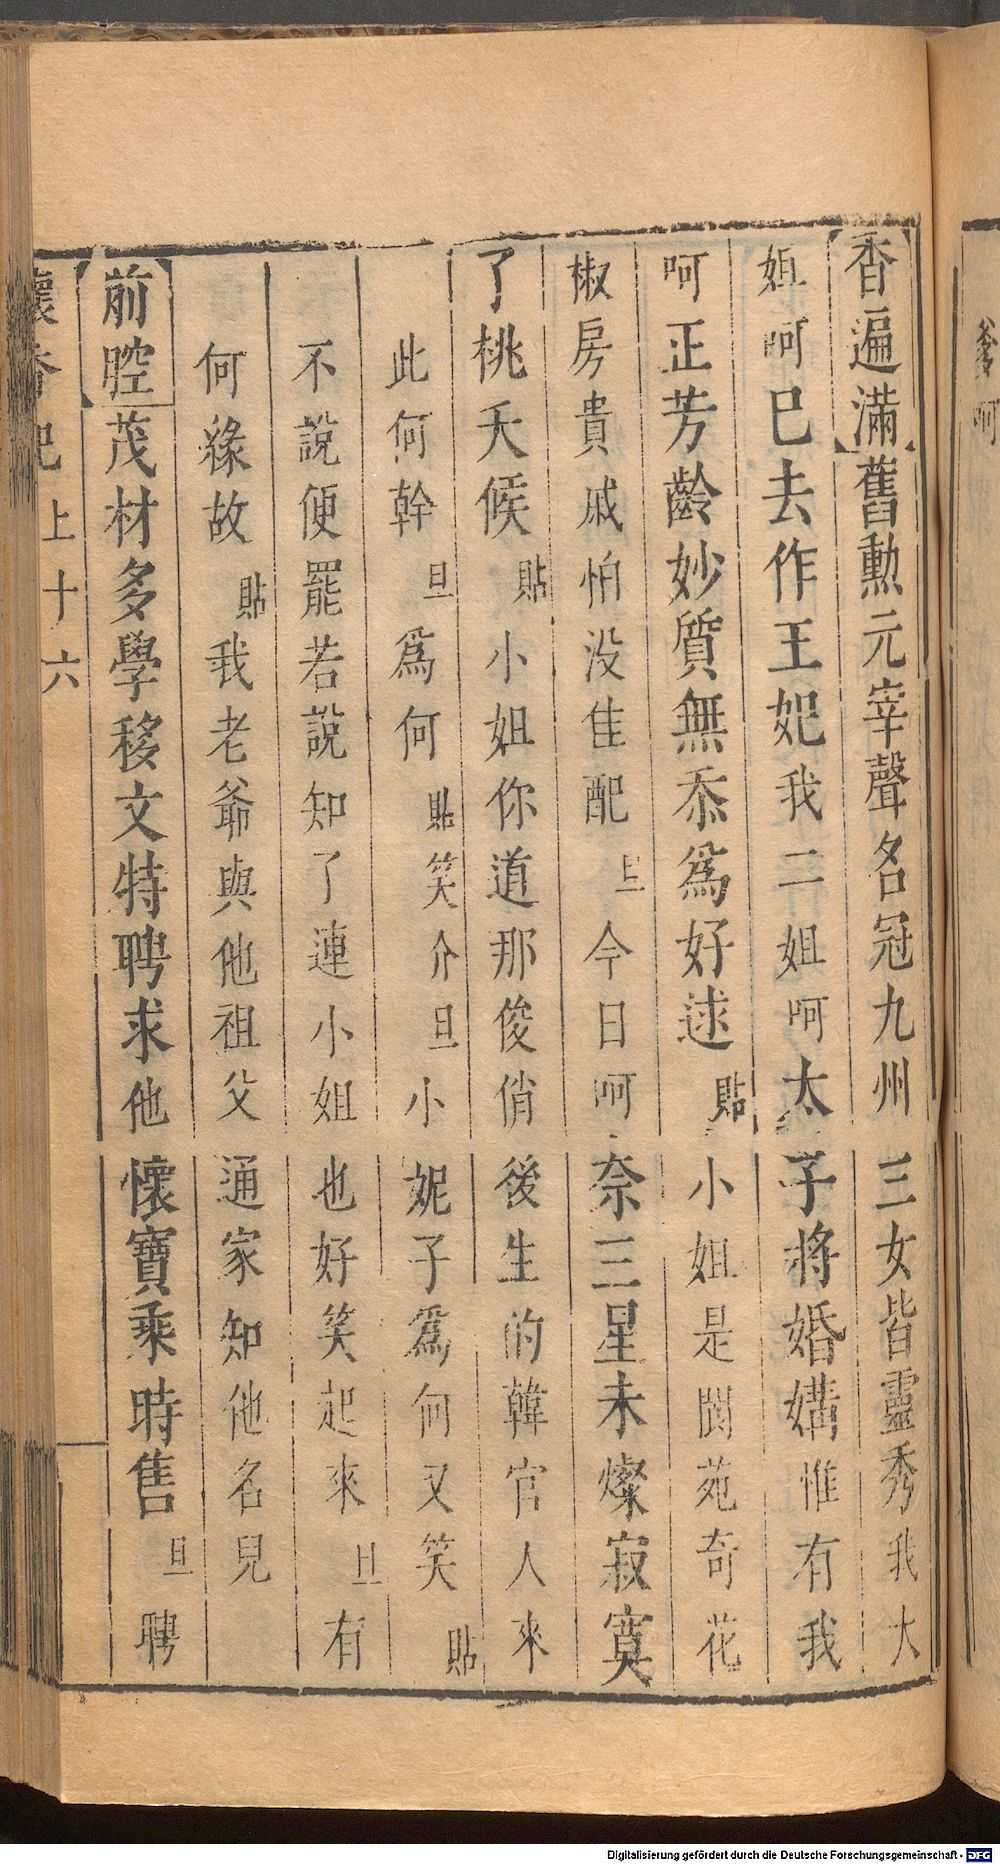 爹呵
香遍滿舊勲元宰聲名冠九州三女皆靈秀我大
姐呵已去作王妃我二姐呵太子將婚媾惟有我
呵正芳齡妙質無忝爲好逑貼小姐是閬苑奇花
椒房貴戚怕没佳配旦今日呵奈三星未燦寂寞
了桃夭候貼小姐你道那俊俏後生的韓官人來
此何幹旦爲何貼笑介旦小妮子爲何又笑貼
不說便罷若說知了連小姐也好笑起來旦有
何緣故貼我老爺與他祖父通家知他名兒
前腔茂材多學移文特聘求他懷寶乘時售旦聘
懷香記上十六
Digitalisierung gefördert durch die Deutsche Forschungsgemeinschaft - DFG